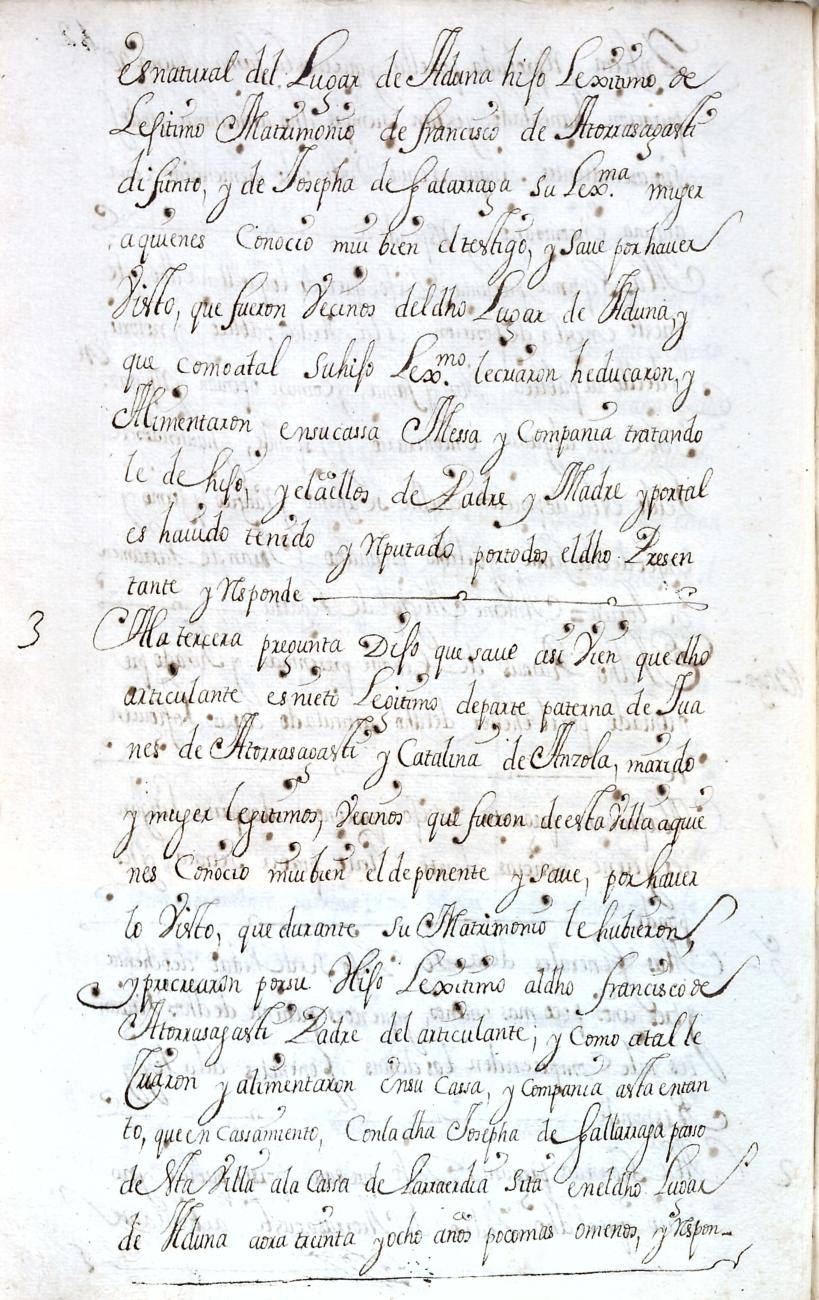 es natural del Lugar de Aduna hijo Lexitimo de
Lejitimo Matrimonio de francisco de Atorrasagasti
difunto, y de Josepha de Galarraga su Lex.ma muger
aquienes Conocio mui bien el testigo, y save por haver
Visto, que fueron Vecinos del dho Lugar de Aduna, y
que como atal Su hijo Lex.mo le criaron heducaron, y
Alimentaron en su cassa Messa y Compania tratando
le de hijo, y el aellos de Padre y Madre y por tal
es havido tenido y Reputado por todos el dho Presen
tante y Responde
3 Ala tercera pregunta Dijo que save asi Vien que dho
articulante es nieto Legitimo departe paterna de Jua
nes de Atorrasagasti y Catalina de Anzola, marido
y muger legitimos, Vecinos que fueron de esta Villa aquie
nes Conocio mui bien el deponente y save, por haver
lo Visto, que durante su Matrimonio le hubieron,
y precrearon por su Hijo Lexitimo aldho francisco de
Atorrasagasti Padre del articulante; y Como atal le
Criaron y alimentaron en su Cassa, y Compania asta entan
to, que en Cassamiento, Con la dha Josepha de Gallarraga passo
de Sta Villa ala Cassa de Larraerdia Sita en el dho Lugar
de Aduna aora treinta y ocho años poco mas omenos, y Respon-